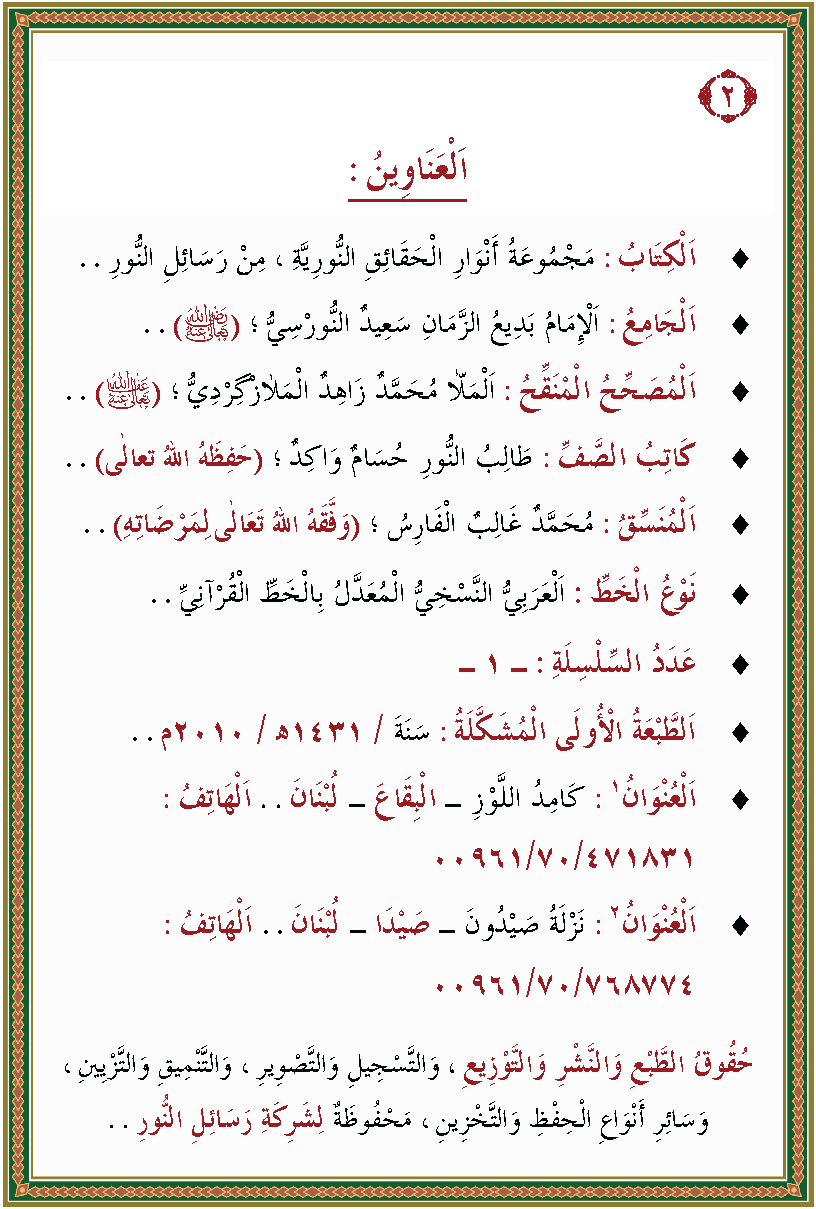 ٢
اَلْعَنَاوِينُ :
♦ اَلْكِتَابُ : مَجْمُوعَةُ أَنْوَارِ الْحَقَائِقِ النُّورِيَّةِ ، مِنْ رَسَائِلِ النُّورِ . .
♦ اَلْجَامِعُ : اَلْإِمَامُ بَدِيعُ الزَّمَانِ سَعِيدٌ النُّورْسِيُّ ؛ (رَضِيَ اللهُ تَعَالَى عَنْهُ) . .
♦ اَلْمُصَحِّحُ الْمُنَقِّحُ : اَلْمَلَّا مُحَمَّدٌ زَاهِدٌ الْمَلَازْگِرْدِيُّ ؛ (عَفَا اللهُ تَعَالَى عَنْهُ) . .
♦ كَاتِبُ الصَّفِّ : طَالِبُ النُّورِ حُسَامٌ وَاكِدٌ ؛ (حَفِظَهُ اللهُ تعالٰى) . .
♦ اَلْمُنَسِّقُ : مُحَمَّدٌ غَالِبٌ الْفَارِسُ ؛ (وَفَّقَهُ اللهُ تَعَالٰى لِمَرْضَاتِهِ) . .
♦ نَوْعُ الْخَطِّ : اَلْعَرَبِيُّ النَّسْخِيُّ الْمُعَدَّلُ بِالْخَطِّ الْقُرْآنِيِّ . .
♦ عَدَدُ السِّلْسِلَةِ : ــ ١ ــ
♦ اَلطَّبْعَةُ الْأُولَى الْمُشَكَّلَةُ : سَنَةَ / ١٤٣١هـ / ٢٠١٠م . .
♦ اَلْعُنْوَانُ١ : كَامِدُ اللَّوْزِ ــ الْبِقَاعَ ــ لُبْنَانَ . . اَلْهَاتِفُ :
٠٠٩٦١/٧٠/٤٧١٨٣١
♦ اَلْعُنْوَانُ٢ : نَزْلَةُ صَيْدُونَ ــ صَيْدَا ــ لُبْنَانَ . . اَلْهَاتِفُ :
٠٠٩٦١/٧٠/٧٦٨٧٧٤
حُقُوقُ الطَّبْعِ وَالنَّشْرِ وَالتَّوْزِيعِ ، وَالتَّسْجِيلِ وَالتَّصْوِيرِ ، وَالتَّنْمِيقِ وَالتَّزْيِينِ ،
وَسَائِرِ أَنْوَاعِ الْحِفْظِ وَالتَّخْزِينِ ، مَحْفُوظَةٌ لِشَرِكَةِ رَسَائِلِ النُّورِ . .